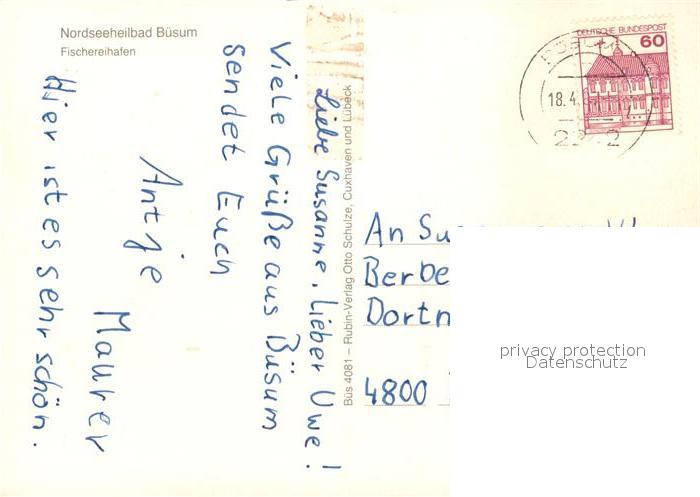 Nordseeheilbad Büsum
Fischereihafen
Liebe Susanne, Lieber Uwe!
Viele Grüße aus Büsum
sendet Euch
Antje
Maurer
Hier ist es sehr schön.
Büs 4081 – Rubin-Verlag Otto Schulze, Cuxhaven und Lübeck
DEUTSCHE BUNDESPOST
60
18.4.
An Su
Berbe
Dortn
4800
privacy protection
Datenschutz